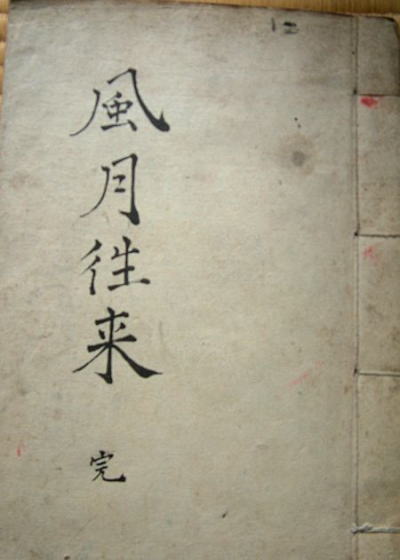 風月徃来
完